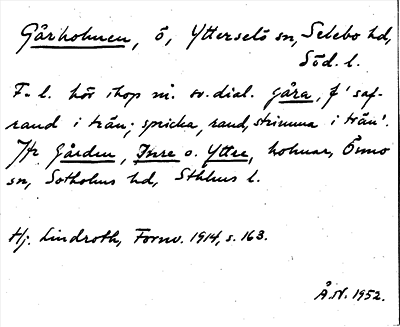 Gårholmen, ö, Ytterselö sn, Selebo hd,
Söd. l.
F. l. hör ihop m. sv. dial. gåra, f 'saf-
rand i trän; spricka, rand, strimma i trän'.
Jfr Gården, Inre o. Yttre, holmar, Ösmo
sn, Sotholms hd, Sthlms l.
Hj. Lindroth, Fornv. 1914, s. 163.
Å.N. 1952.